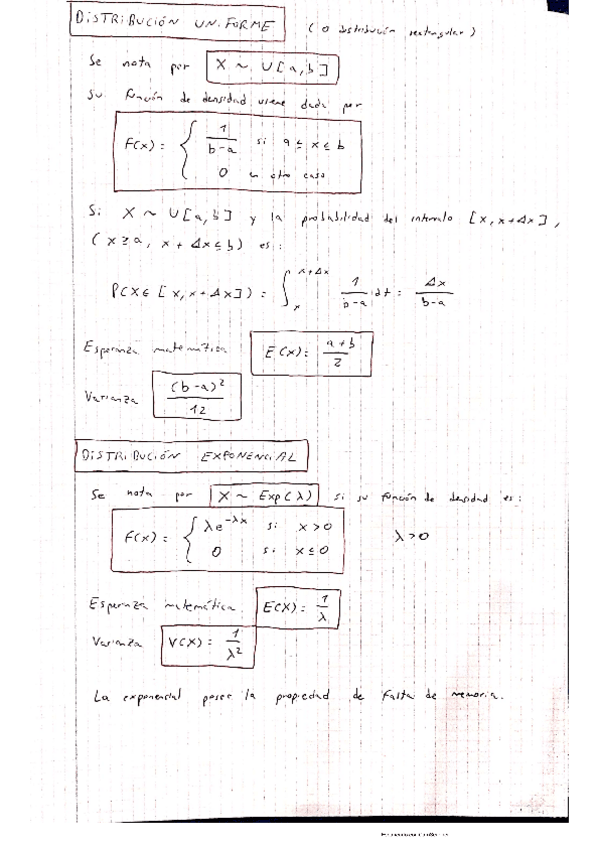 DISTRIBUCIÓN UNIFORME (o distribución rectangular)
Se nota por X ~ U[a,b]
Su función de densidad viene dada por
F(x) = { 1/(b-a) si a ≤ x ≤ b
0 en otro caso
Si X ~ U[a,b] y la probabilidad del intervalo [x, x+Δx],
(x ≥ a, x + Δx ≤ b) es:
P(X ∈ [x, x+Δx]) = ∫_x^{x+Δx} 1/(b-a) dt = Δx/(b-a)
Esperanza matemática E(X) = (a+b)/2
Varianza (b-a)²/12
DISTRIBUCIÓN EXPONENCIAL
Se nota por X ~ Exp(λ) si su función de densidad es:
F(x) = { λe^{-λx} si x > 0 λ > 0
0 si x ≤ 0
Esperanza matemática E(X) = 1/λ
Varianza V(X) = 1/λ²
La exponencial posee la propiedad de falta de memoria.